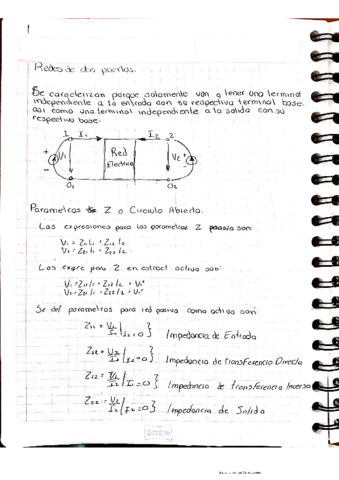 1
Redes de dos puertos.
Se caracterizan porque solamente van a tener una terminal
independiente a la entrada con su respectiva terminal base.
así como una terminal independiente a la salida con su
respectivo base.
1 I₁ I₂ 2
+ V₁ Red Electrica V₂ +
O₁ O₂
Parametros Z o Circuito Abierto.
Las expresiones para los parametros Z pasiva son:
V₁ = Z₁₁ I₁ + Z₁₂ I₂
V₂ = Z₂₁ I₁ + Z₂₂ I₂
Las expre para Z en estruct activa son:
V₁ = Z₁₁ I₁ + Z₁₂ I₂ + V₁°
V₂ = Z₂₁ I₁ + Z₂₂ I₂ + V₂°
Se def parametros para red pasiva como activa son:
Z₁₁ = V₁/I₁ | I₂=0 } Impedancia de Entrada
V₂/I₁ | I₂=0 } Impedancia de transferencia Directa
Z₁₂ = V₁/I₂ | I₁=0 } Impedancia de transferencia Inversa
Z₂₂ = V₂/I₂ =0 } Impedancia de Salida
Scribe